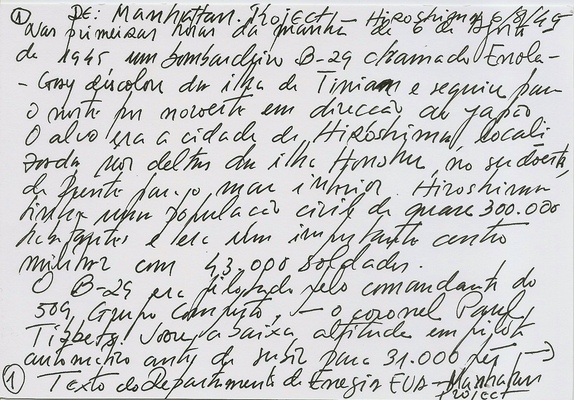 ① DE: Manhattan Project – Hiroshima 6/8/45
Nas primeiras horas da manhã de 6 de Agosto
de 1945 um bombardeiro B-29 chamado Enola-
-Gay descolou da ilha de Tinian e seguiu para
o norte por noroeste em direcção ao Japão
O alvo era a cidade de Hiroshima, locali
zada nos deltas da ilha Honshu, no sudoeste,
de frente para o mar interior. Hiroshima
tinha uma população civil de quase 300.000
habitantes e era um importante centro
militar com 43.000 soldados.
O B-29 era pilotado pelo comandante do
509, Grupo Composto, – o coronel Paul
Tibbets. Voou a baixa altitude em piloto
automático antes de subir para 31.000 pés →
① Texto do Departamento de Energia EUA – Manhattan
Project